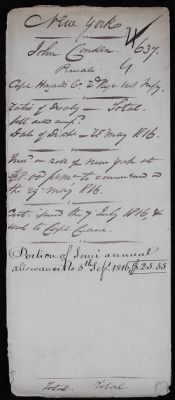 New York
637.
John Conden
Private
Capt Hazards Co. 2 Regt US Infy.
Rate of Disaby – Total.
Date of Death – 28 May 1816.
Insd on roll of New York at
$8.00 p mo to commence on
the 29 May 1816.
Cert. issued the 7 July 1816, &
sent to Capt Crane.
Portion of Semi annual
allowance to 5th Sept. 1816, $25.55
Total. Total